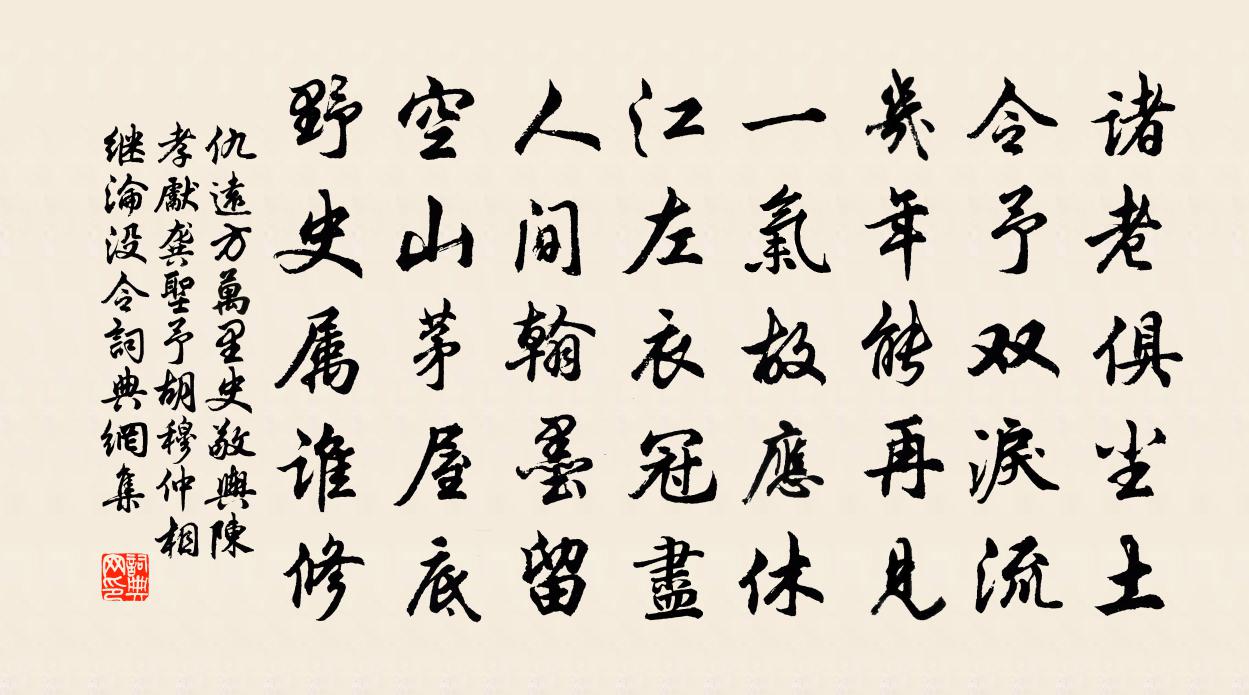 诸老俱尘土
令予双淚流
幾年能再見
一氣故應休
江左衣冠盡
人间翰墨留
空山茅屋底
野史属谁修
仇遠方萬里史敬輿陳
孝獻龔聖予胡穆仲相
继淪没令詞典網集
詞典
网印